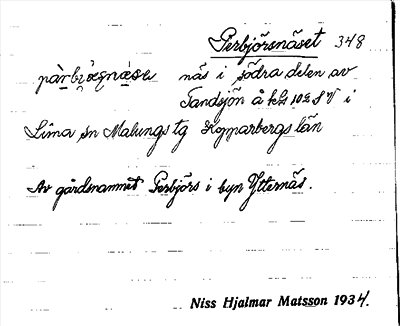 Perbjörsnäset 348
näs i södra delen av
Tandsjön å kbl 102 SV i
Lima sn Malungs tg Kopparbergs län
Av gårdsnamnet Perbjörs i byn Ytternäs.
Niss Hjalmar Matsson 1934.